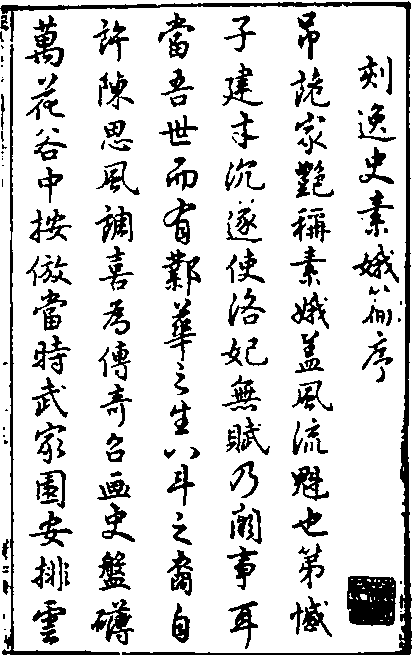 刻逸史素娥篇序
吊詭家艷稱素娥蓋風流魁也第憾
子建才沉遂使洛妃無賦乃闕事耳
當吾世而有鄴華之生八斗之裔自
許陳思風調喜為傳奇召画史盤礴
萬花谷中按倣當時武家園安排雲